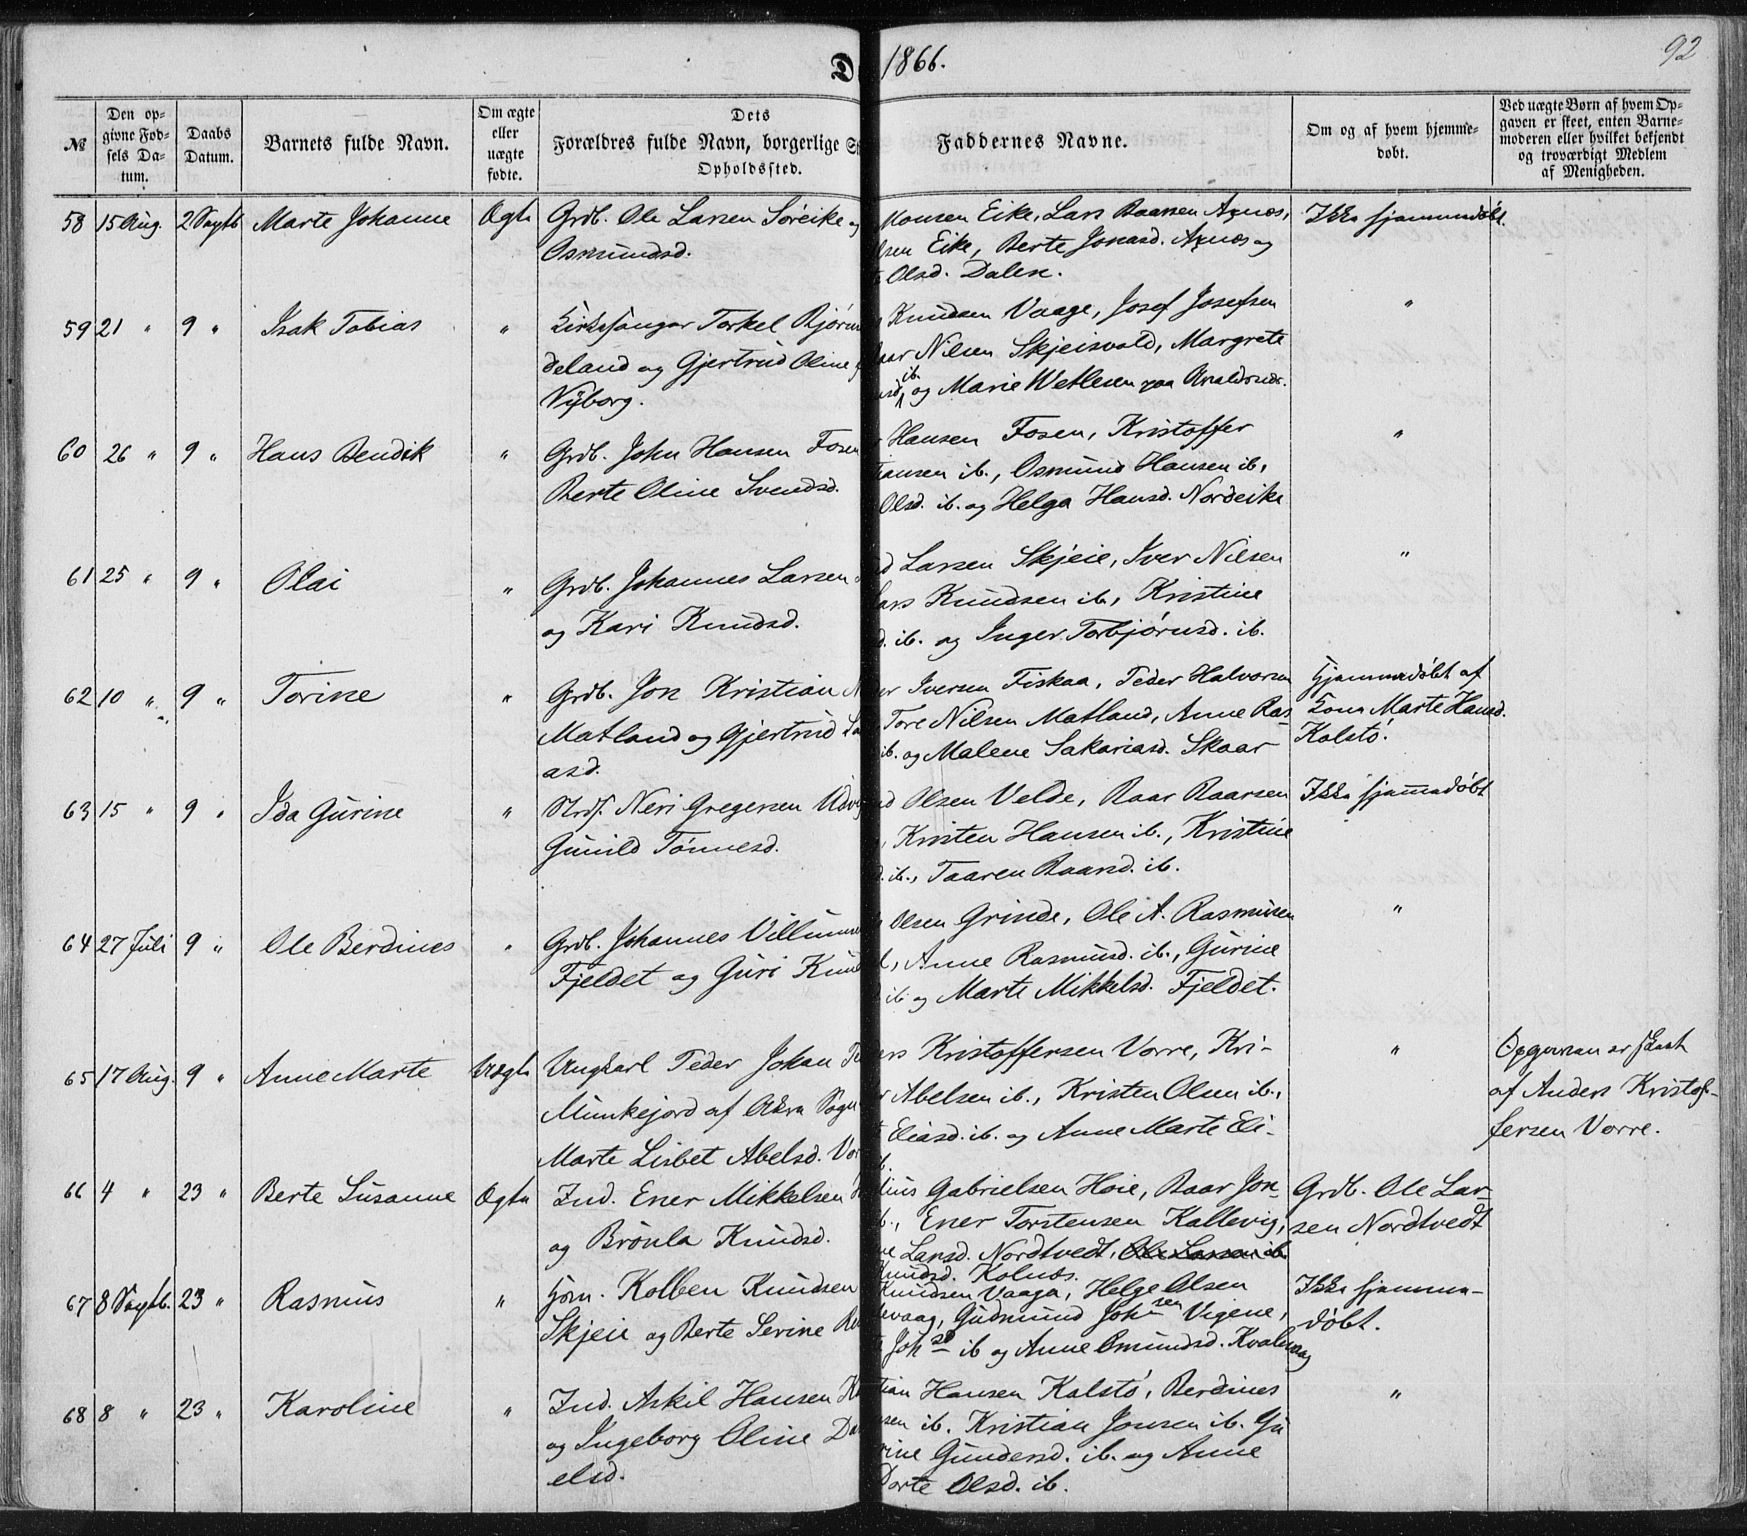 D
1866.
92
№
Den op-
givne Fød-
sels Da-
tum.
Daabs
Datum.
Barnets fulde Navn.
Om ægte
eller
uægte
fødte.
Dets
Forældres fulde Navn, borgerlige S
Opholdssted.
Faddernes Navne.
Om og af hvem hjemme-
døbt.
Ved uægte Børn af hvem Op-
gaven er skeet, enten Barne-
moderen eller hvilket bekjendt
og troværdigt Medlem
af Menigheden.
58 15 Aug. 2 Septb Marte Johanne Ægte Grdb. Ole Larsen Søreike og
Osmundsd.
Monsen Eike, Lars Baarsen Axnæs,
lsen Eike, Berte Jonasd. Axnæs og
Olsd. Dalen.
Ikke hjemmedøbt.
59 21 " 9 " Isak Tobias " Kirkesanger Torkel Bjørn
deland og Gjertrud Oline
Nyborg.
Knudsen Vaage, Josef Josefsen
Baar Nilsen Skjeisvold, Margrete
ib.
og Marie Wetlesen paa Avaldsnæs.
"
60 26 " 9 " Hans Bendik " Grdb. John Hansen Fosen
Berte Oline Svendsd.
Hansen Fosen, Kristoffer
tiansen ib., Osmund Hansen ib.,
Olsd. ib. og Helga Hansd. Nordeike
"
61 25 " 9 " Olai " Grdb. Johannes Larsen
og Kari Knudsd.
d Larsen Skjeie, Iver Nilsen
Lars Knudsen ib., Kristine
d. ib. og Inger Torbjørnsd. ib.
"
62 10 " 9 " Torine " Grdb. Jon Kristian
Matland og Gjertrud Sa
asd.
er Iversen Fiskaa, Peder Halvorsen
Tore Nilsen Matland, Anne Ras-
ib. og Malene Sakariasd. Skaar
Hjemmedøbt af
Kona Marte Hansd.
Kolstø.
63 15 " 9 " Ida Gurine " Strds. Neri Gregersen Udvi
Gunild Tønnesd.
d Olsen Velde, Baar Baarsen
, Kristen Hansen ib., Kristine
d. ib., Taaren Baarsd. ib.
Ikke hjemmedøbt
64 27 Juli 9 " Ole Berdines " Grdb. Johannes Villumse
Fjeldet og Guri Knud
Olsen Grinde, Ole A. Rasmusen
, Anne Rasmusd. ib., Gurine
ib. og Marte Mikkelsd. Fjeldet.
"
65 17 Aug. 9 " Anne Marte Uægte Ungkarl Peder Johan Pe
Munkejord af Akre Sogn
Marte Lisbet Abelsd. Vor
ers Kristoffersen Vorre, Kri-
r Abelsen ib., Kristen Olsen ib.,
Eliasd. ib. og Anne Marte Eli-
b.
"
Opgaven er skeet
af Anders Kristof-
fersen Vorre.
66 4 " 23 " Berte Susanne Ægte Ind. Ener Mikkelsen
og Brønla Knudsd.
lius Gabrielsen Høie, Baar Jon-
b., Ener Torstensen Kallevig,
ne Larsd. Nordtvedt, Ole Larsen ib.
Knudsd. Kolnæs.
Grdb. Ole Lar-
sen Nordtvedt
67 8 Septb. 23 " Rasmus " Hsm. Kolben Knudsen
Skjeie og Berte Serine Be
Knudsen Vaage, Helge Olsen
levaag, Gudmund Johnsen Vigene,
Johsd ib og Anne Omundsd. Kvalevaag
Ikke hjemme-
døbt.
68 8 " 23 " Karoline " Ind. Askil Hansen K
og Ingeborg Oline Da
elsd.
tian Hansen Kalstø, Berdines
sen ib. Kristian Jonsen ib. Gu
rine Gundersd. ib. og Anne
Dorte Olsd. ib.
"